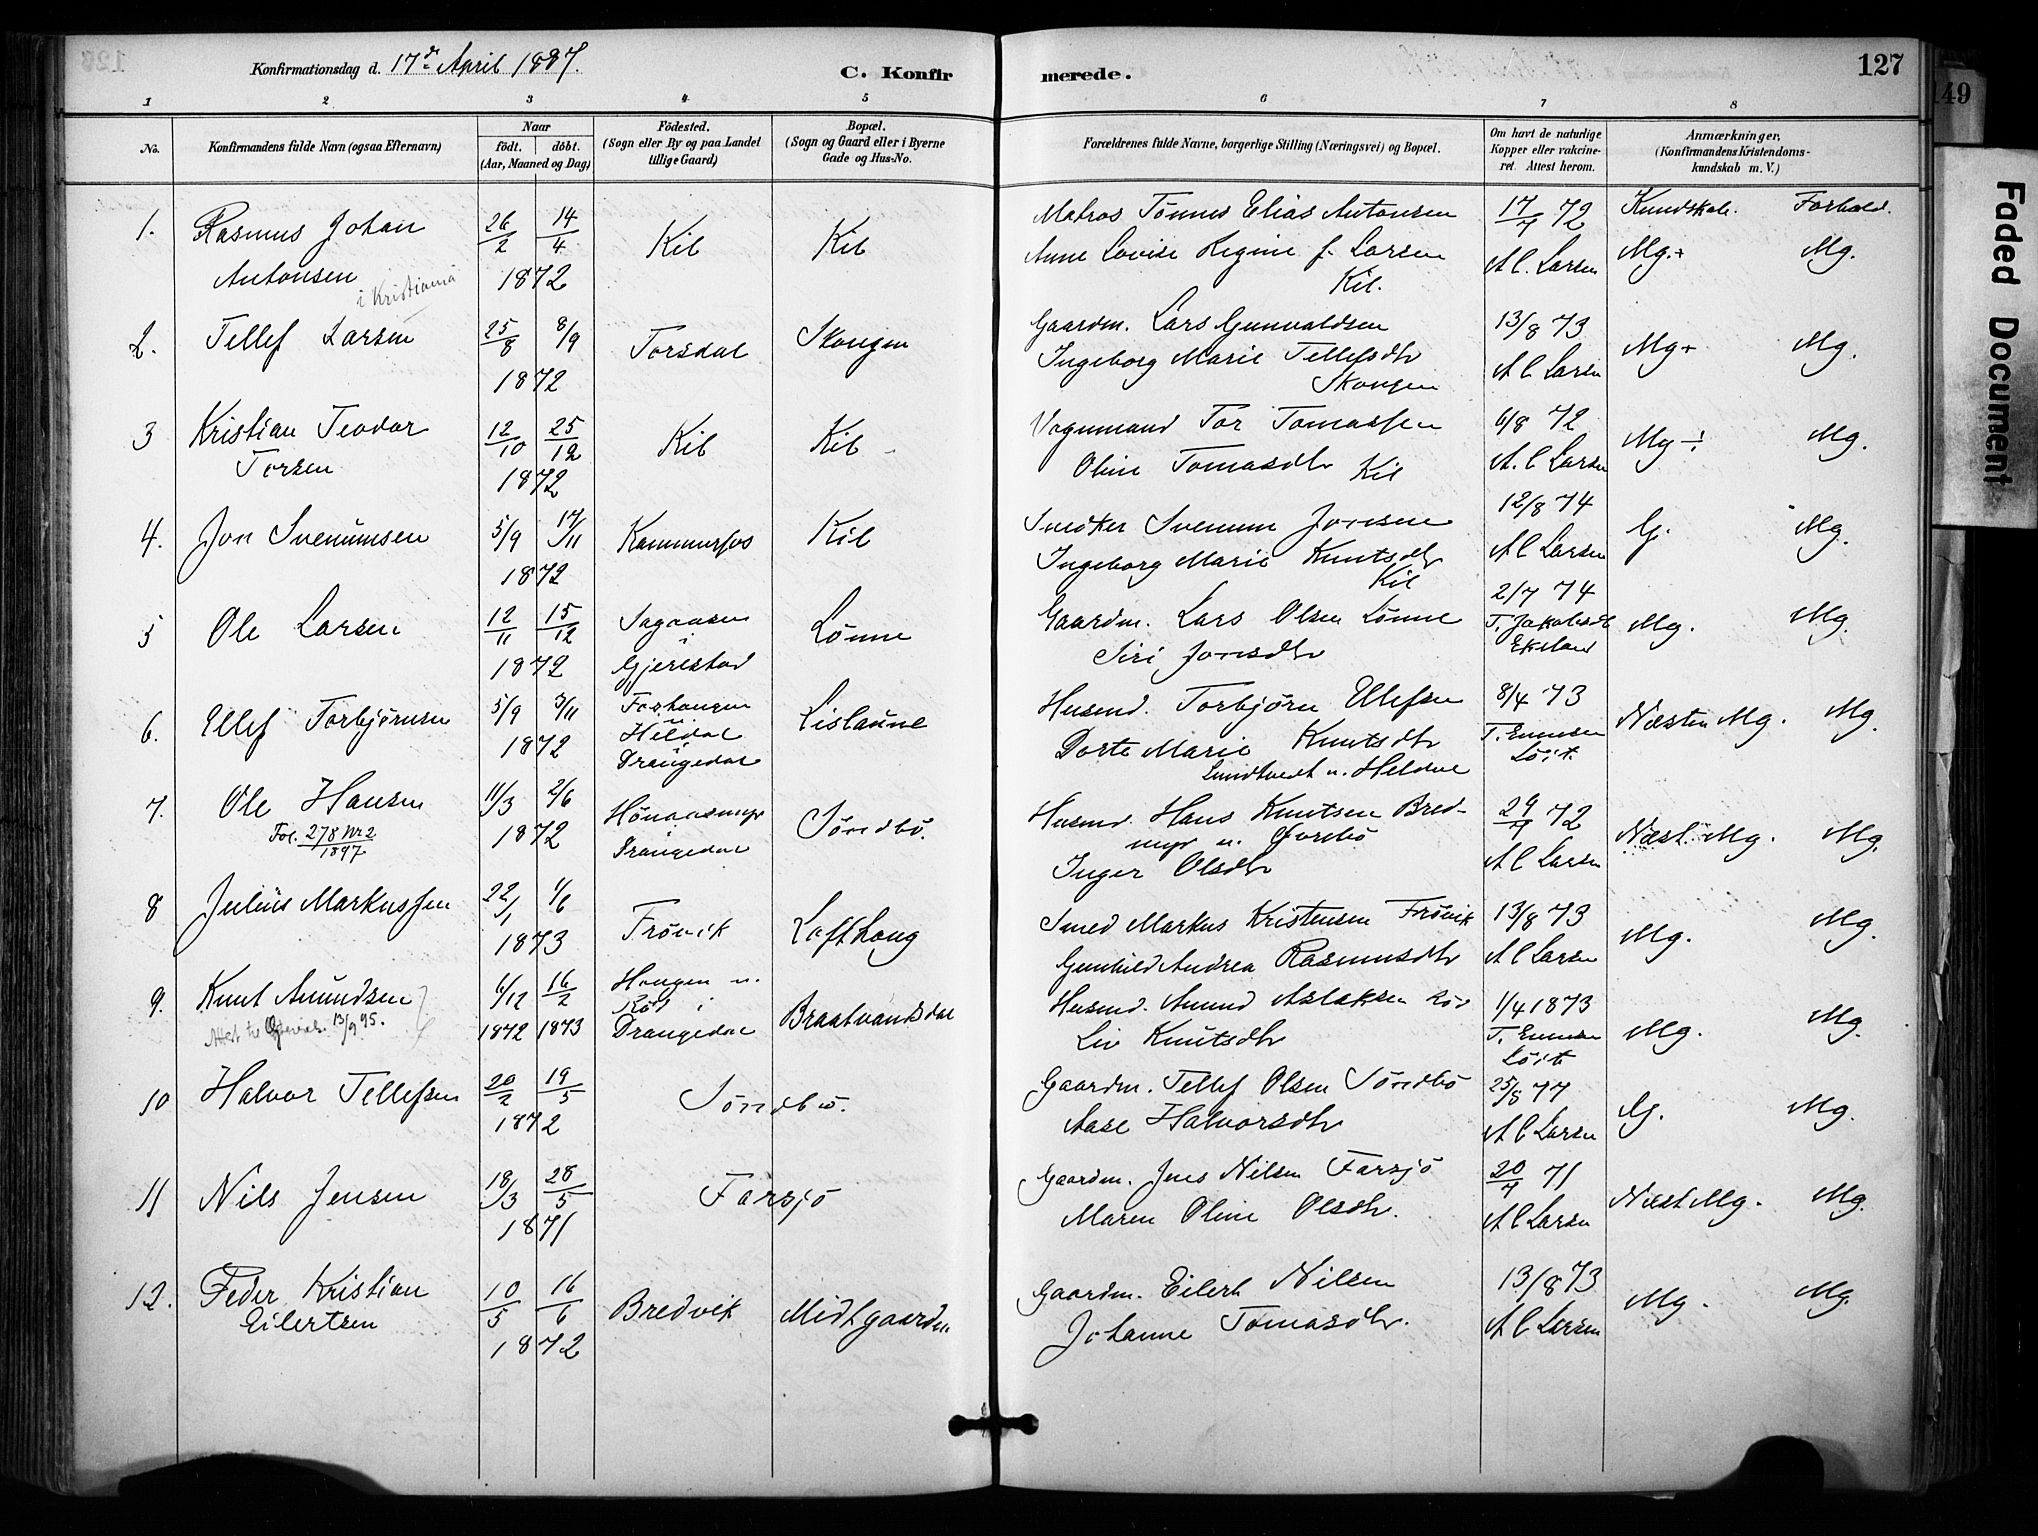 Konfirmationsdag d. 17de April 1887.
C. Konfirmerede.
127
149
Faded Document
1 2 3 4 5 6 7 8
No.
Konfirmandens fulde Navn (ogsaa Efternavn)
Naar
født. døbt.
(Aar, Maaned og Dag)
Fødested.
(Sogn eller By og paa Landet
tillige Gaard)
Bopæl.
(Sogn og Gaard eller i Byerne
Gade og Hus-No.
Forældrenes fulde Navne, borgerlige Stilling (Næringsvei) og Bopæl.
Om havt de naturlige
Kopper eller vakcine-
ret. Attest herom.
Anmærkninger,
(Konfirmandens Kristendoms-
kundskab m. V.)
Kundskab. Forhold.
1. Rasmus Johan 26/2 14/4 Kil Kil Matros Tønnes Elias Antonsen 17/7 72 Mg.+ Mg.
Antonsen 1872 Anne Lovise Regine f. Larsen A C. Larsen
i Kristiania Kil.
2. Tellef Larsen 25/8 8/9 Torsdal Skougen Gaardm. Lars Gunvaldsen 13/8 73 Mg+ Mg.
1872 Ingeborg Marie Tellefsdtr A C Larsen
Skougen
3 Kristian Teodor 12/10 25/12 Kil Kil Vognmand Tor Tomassen 6/8 72 Mg ÷ Mg.
Torsen 1872 Oline Tomasdtr Kil A. C Larsen
4. Jon Svenumsen 5/9 17/11 Kammerfos Kil Snedker Svenum Jonsen 12/8 74 G. Mg.
1872 Ingeborg Marie Knutsdtr A C Larsen
Kil
5 Ole Larsen 12/11 15/12 Lønne Gaardm. Lars Olsen Lønne 2/7 74 Mg. Mg.
1872 i Gjerestad Siri Jonsdtr T. Jakobsdtr
Ekeland
6. Ellef Torbjørnsen 5/9 3/11 Lislaune Husmd. Torbjørn Ellefsen 8/4 73 Næsten Mg. Mg.
1872 Heldal Dorte Marie Knutsdtr
Drangedal u. Heldal
7. Ole Hansen 11/3 2/6 Søndbø. Husmd. Hans Knutsen Bred-
Fol. 278 Nr 2/1897 1872 Drangedal myr u. 29/7 72 Næst Mg. Mg.
Inger Olsdtr A C Larsen
8 Julius Markussen 22/1 1/6 Frøvik Lofthoug Smed Markus Kristensen Frøvik 13/8 73 Mg. Mg.
1873 Gunhild Andrea Rasmusdtr A C Larsen
9. Knut Amundsen 6/12 16/2 Hougen u. Braatvandsdal Husmd. Amund Aslaksen 1/4 1873 Mg. Mg.
13/9 95. 1872 1873 Drangedal Liv Knutsdtr
10 Halvor Tellefsen 20/2 19/5 Søndbø. Gaardm. Tellef Olsen Søndbø 25/8 77 G. Mg.
1872 Aase Halvorsdtr A C Larsen
11 Nils Jensen 18/3 28/5 Farsjø Gaardm. Jens Nilsen Farsjø 20/7 71 Næst Mg. Mg.
1871 Maren Oline Olsdtr. A C Larsen
12. Peder Kristian 10/5 16/6 Bredvik Midtgaarden Gaardm. Eilert Nilsen 13/8 73 Mg. Mg.
Eilertsen 1872 Johanne Tomasdtr. A C Larsen